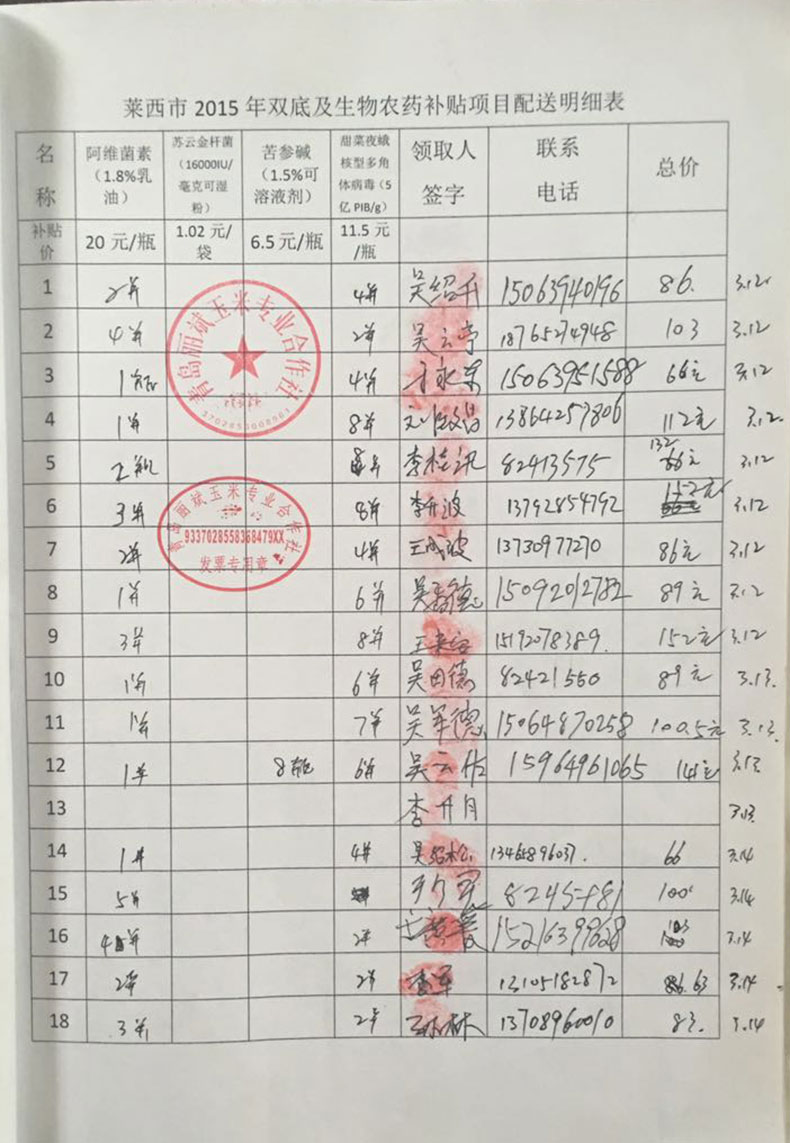 莱西市 2015 年双底及生物农药补贴项目配送明细表
名称 阿维菌素（1.8%乳油） 苏云金杆菌（16000IU/毫克可湿粉） 苦参碱（1.5%可溶液剂） 甜菜夜蛾核型多角体病毒（5亿 PIB/g） 领取人签字 联系电话 总价
补贴价 20 元/瓶 1.02 元/袋 6.5 元/瓶 11.5 元/瓶
1 2并 4并 吴绍升 15063940196 86. 3.12
2 4并 2并 吴云亭 18765274948 103 3.12
3 1瓶 4并 15063951588 66元 3.12
4 1并 8并 13864257806 112元 3.12
5 李桂讯 82413575 132 3.12
6 3并 8并 李升波 13792854792 152元 3.12
7 2并 4并 王成波 13730977270 86元 3.12
8 1并 6并 15092012782 89元 3.12
9 3并 8并 15192078389. 152元 3.12
10 1并 6并 吴田德 82421550 89元 3.13.
11 1并 7并 吴军德 15064870258 100.5元 3.13.
12 1并 8瓶 6并 吴云佑 15964961065 141元 3.13
13 李升月 3.13
14 1并 4并 吴绍松 66 3.14
15 5并 100 3.14
16 2并 3.14
17 2并 2并 李军 13105182872 3.14
18 3并 2并 孙林 13708960010 83. 3.14
青岛丽斌玉米专业合作社
3702853608963
青岛丽斌玉米专业合作社
9337028558368479XX
发票专用章